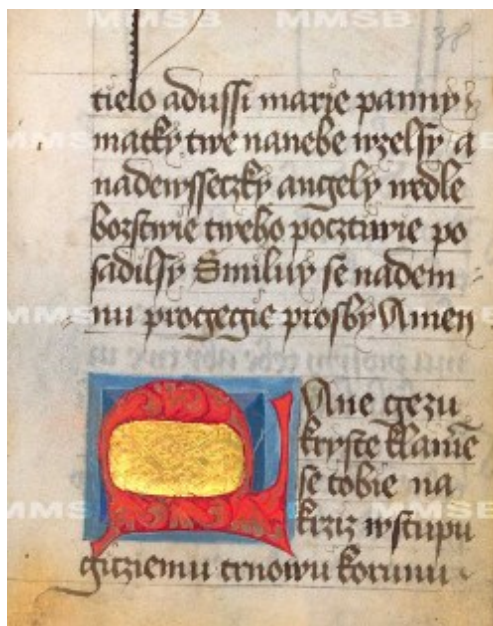 MMSB MMSB
38
tielo adussi marie panny
matky twe nanebe wzelsy a
nadewsseczky angely wedle
bozstwie tweho poczturie po
sadilsy Smiluy se nadem
nu progegie prosby Amen
Ane gezu
kryste klanie
se tobie na
krziz wstupu
gicziemu trnowu korunu